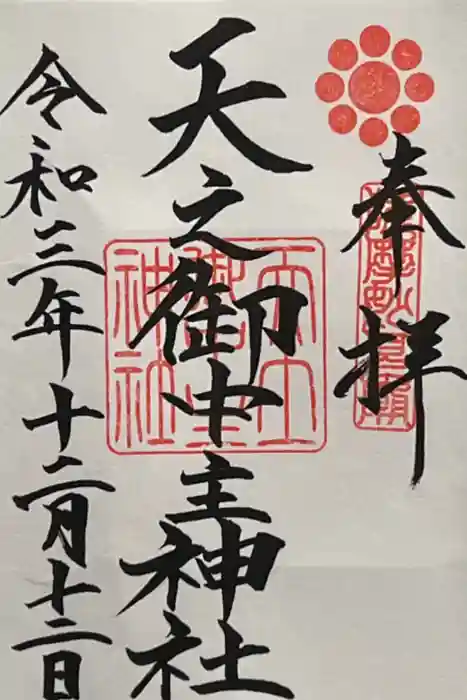 奉拝
天之御中主神社
令和三年十二月十二日
天之御中主神社